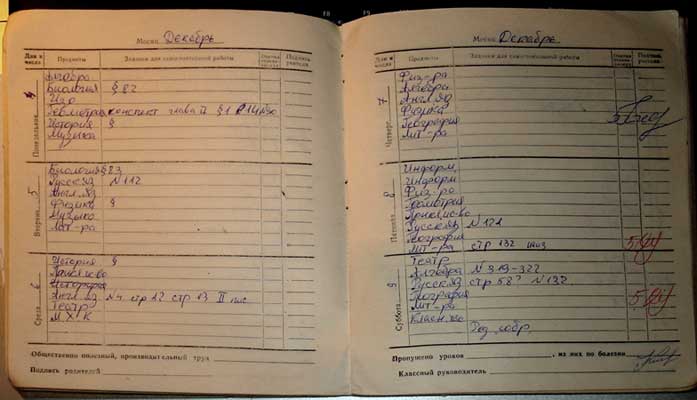 Месяц Декабрь
Дни и числа Предметы Задания для самостоятельной работы Оценка успеваемости Подпись учителя
Понедельник 4
Алгебра
Биология § 82
Изо
Геометрия конспект глава II § 1
История §
Музыка
Вторник 5
Биология § 83
Русск яз N 112
Англ яз
Физика §
Музыка
Лит-ра
Среда 6
История §
География
Англ яз N 4 стр 12 стр 13 II
Театр
М Х К
Общественно полезный, производительный труд
Подпись родителей
Месяц Декабрь
Дни и числа Предметы Задания для самостоятельной работы Оценка успеваемости Подпись учителя
Четверг 7
Физ-ра
Алгебра
Англ яз
Физика
География 5
Лит-ра
Пятница 8
Информ
Информ
Физ-ра
Геометрия
Русск яз N 121
География
Лит-ра стр 132 5
Суббота 9
Театр
Алгебра N 319-322
Русск яз стр 58 N 132
География
Лит-ра 5
Класн. час
Род. собр.
Пропущено уроков , из них по болезни
Классный руководитель